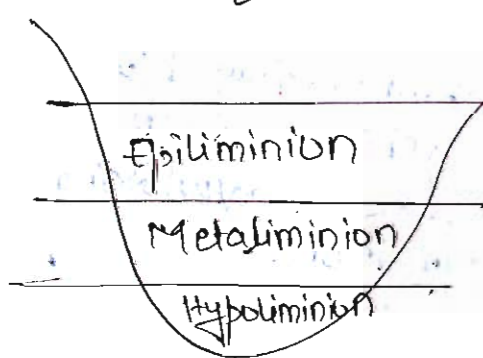 Epiliminion
Metaliminion
Hypoliminion